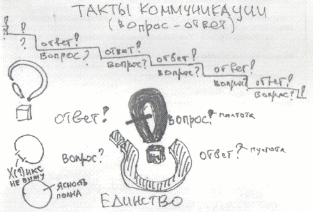 ТАКТЫ КОММУНИКАЦИИ
(вопрос - ответ)
? ?
? ответ?
вопрос? ответ?
вопрос? ответ?
вопрос? ответ?
вопрос? ответ?
вопрос?
ответ! вопрос? пустота
вопрос? ответ? пустота
НЕ ВИЖУ
ЯСНОСТЬ
ПОЛНА
ЕДИНСТВО